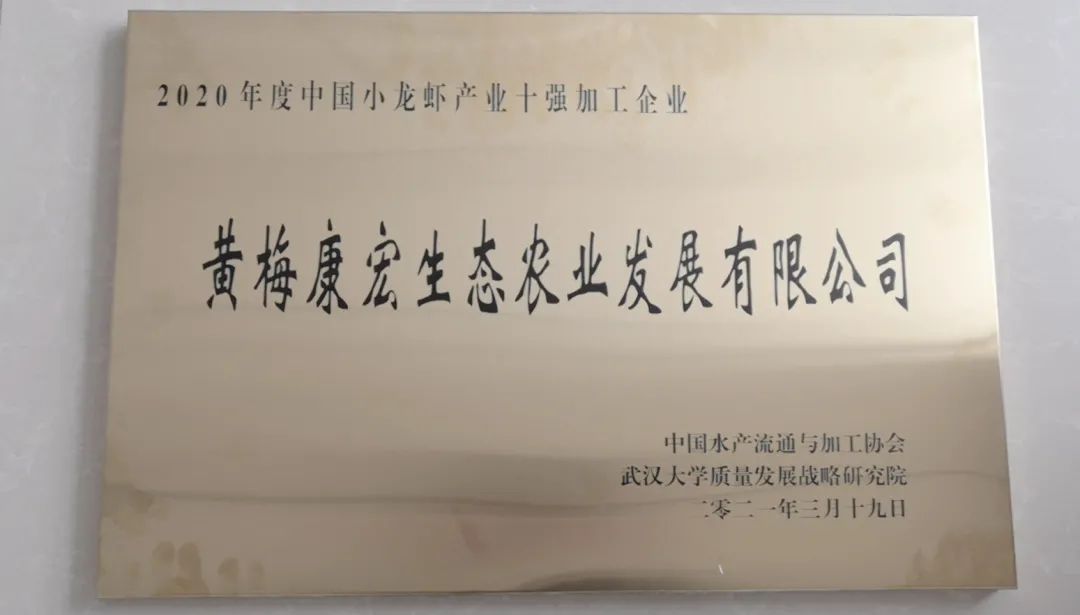 2020年度中国小龙虾产业十强加工企业
黄梅康宏生态农业发展有限公司
中国水产流通与加工协会
武汉大学质量发展战略研究院
二零二一年三月十九日